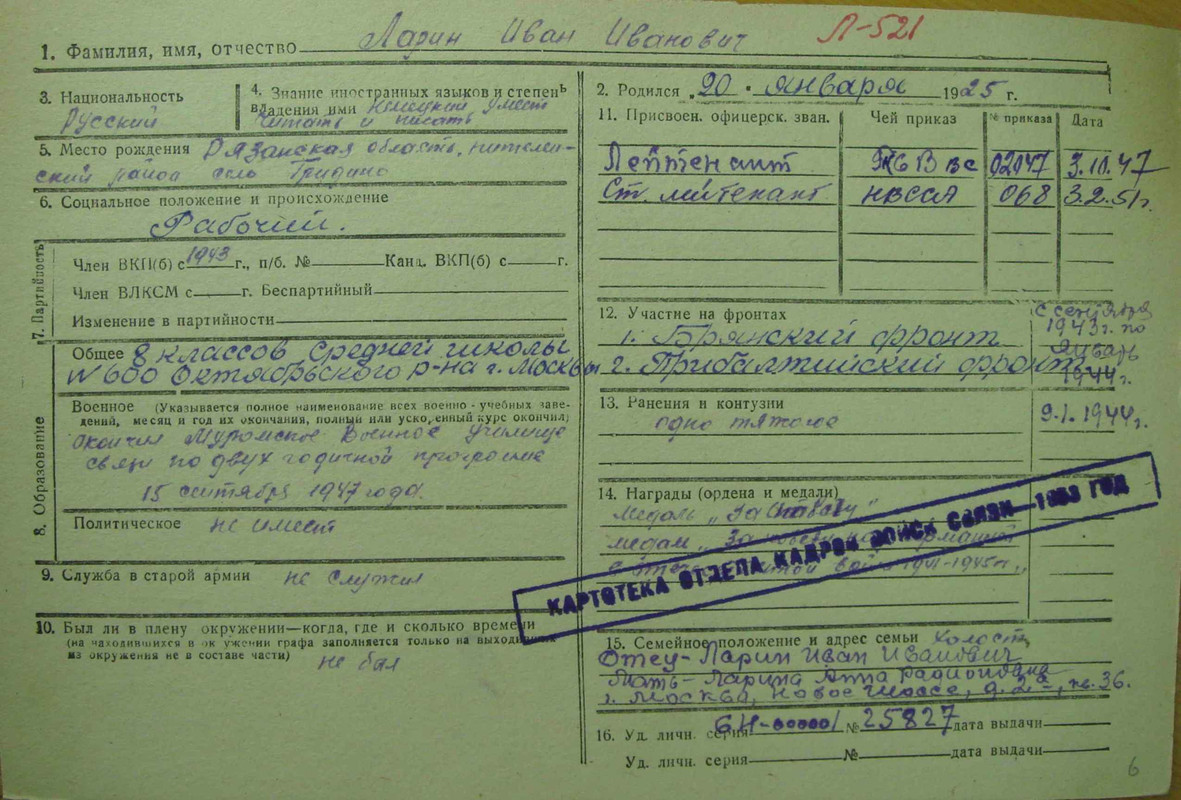 Л-521
1. Фамилия, имя, отчество Ларин Иван Иванович
3. Национальность
Русский
4. Знание иностранных языков и степень
владения ими Немецкий умеет
читать и писать
5. Место рождения Рязанская область,
район село
6. Социальное положение и происхождение
Рабочий.
7. Партийность
Член ВКП(б) с 1943 г., п/б. № Канд. ВКП(б) с г.
Член ВЛКСМ с г. Беспартийный
Изменение в партийности
8. Образование
Общее 8 классов средней школы
№ 600 Октябрьского р-на г. Москвы
Военное (Указывается полное наименование всех военно-учебных заве-
дений, месяц и год их окончания, полный или ускоренный курс окончил)
окончил Муромское Военное училище
связи по двух годичной программе
15 сентября 1947 года.
Политическое не имеет
9. Служба в старой армии не служил
10. Был ли в плену окружении—когда, где и сколько времени
(на находившихся в окружении графа заполняется только на выходивших
из окружения не в составе части)
не был
2. Родился „20 " января 1925 г.
11. Присвоен. офицерск. зван. Чей приказ № приказа Дата
Лейтенант ВВС 02047 3.10.47
Ст. лейтенант 068 3.2.51г.
12. Участие на фронтах с сентября
1943г. по
январь
1944г.
1. Брянский фронт
2. Прибалтийский фронт
13. Ранения и контузии
одно тяжолое 9.1.1944г.
14. Награды (ордена и медали)
медаль „За отвагу"
медаль „За
войне 1941-1945гг.„
КАРТОТЕКА ОТДЕЛА КАДРОВ ВОЙСК СВЯЗИ—1953 ГОД
15. Семейное положение и адрес семьи холост
Отец-Ларин Иван Иванович
Мать-Ларина Анна Радионовна
г. Москва, Новое шоссе, д. 2а, кв. 36.
16. Уд. личн. серия БН-00000 № 25827 дата выдачи
Уд. личн. серия № дата выдачи
6